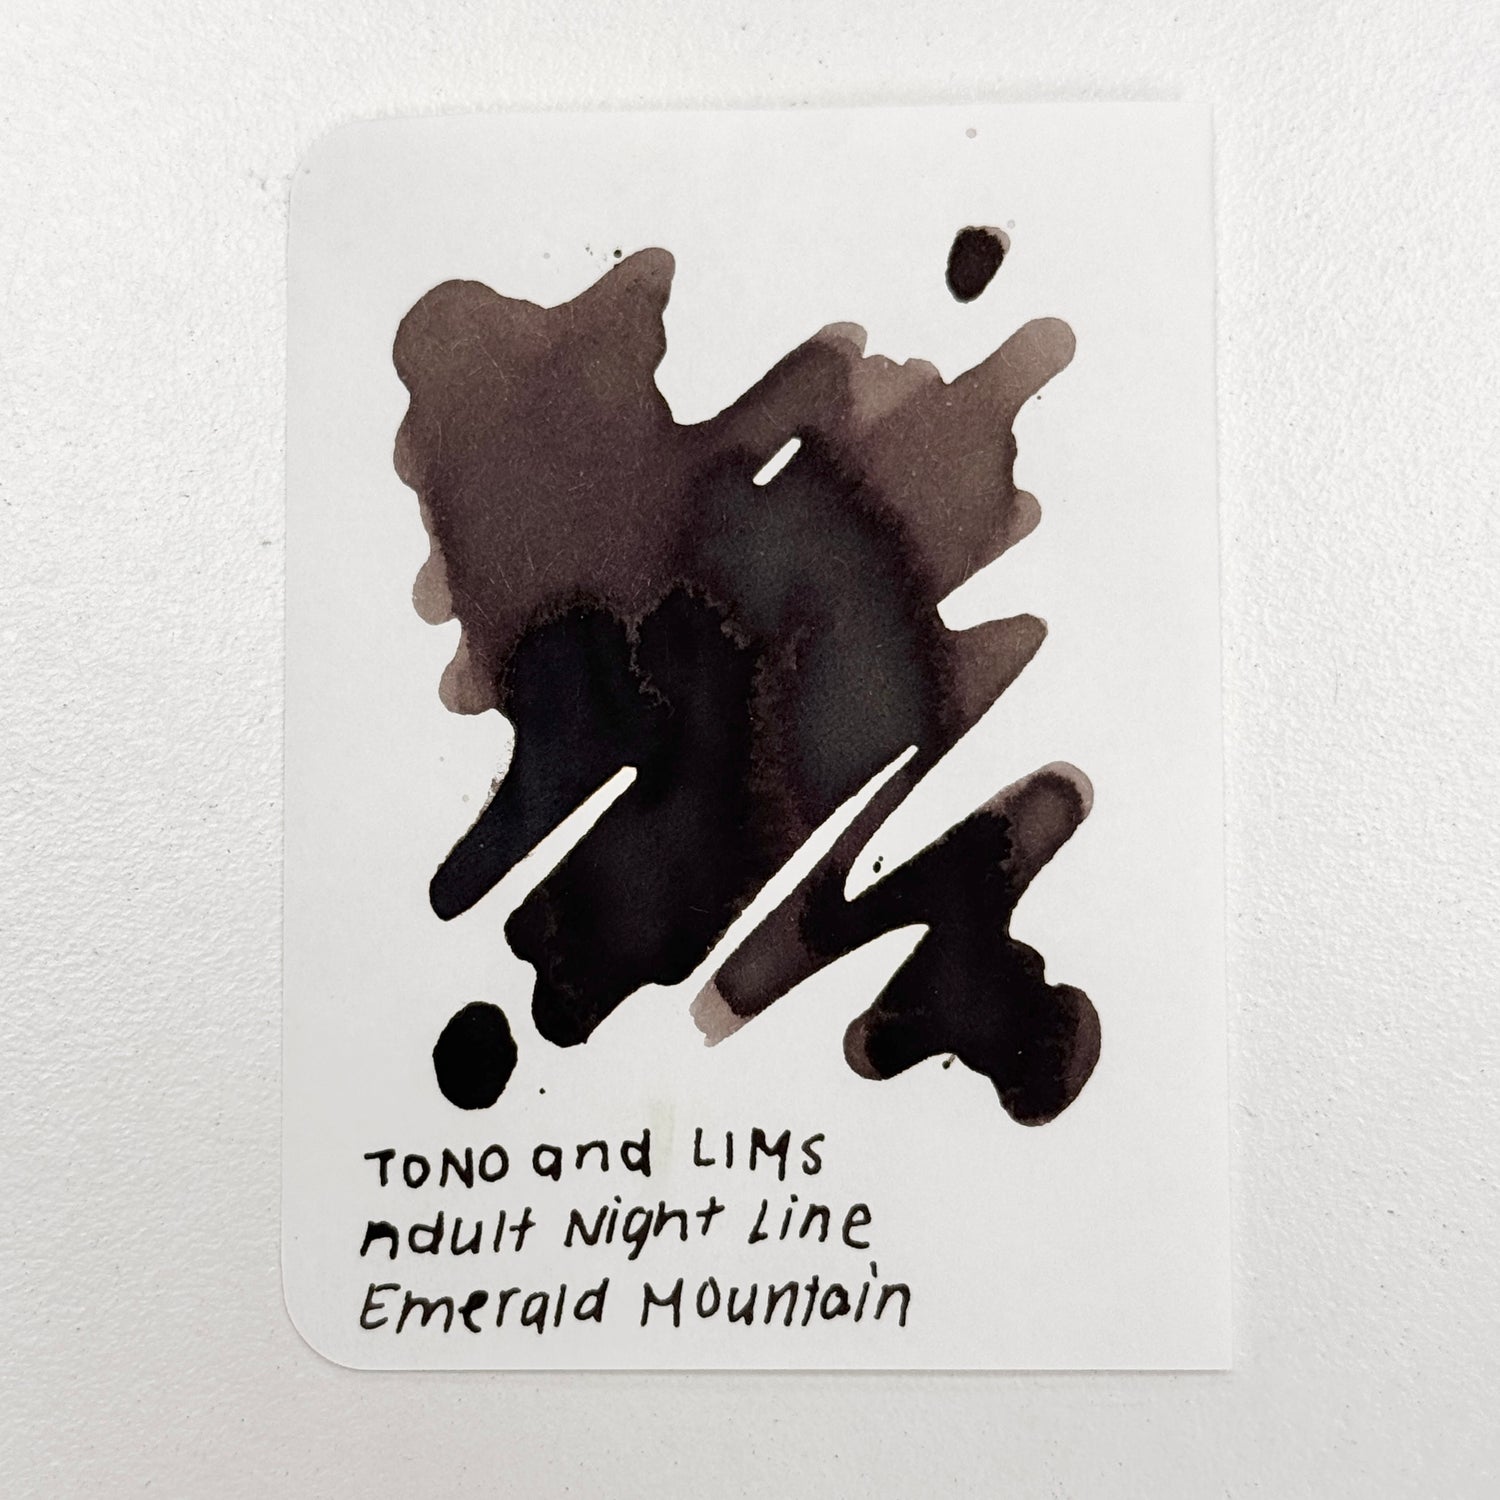 TONO and LIMS
Adult Night Line
Emerald Mountain